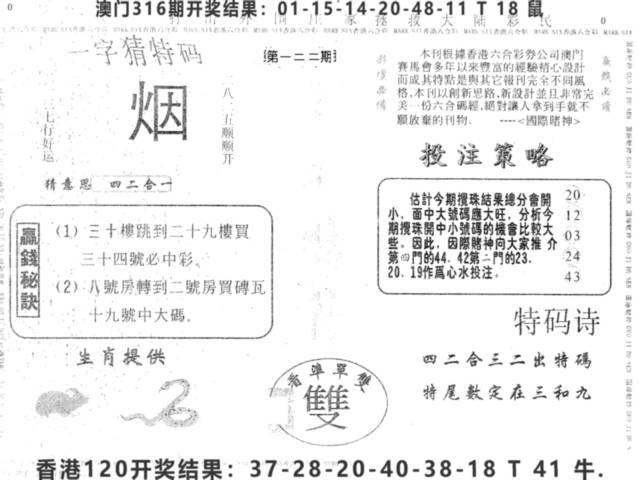 澳门316期开奖结果：01-15-14-20-48-11 T 18 鼠
一字猜特码
第一二二期
烟
八二五顺顺开
三七行好运
猜意思 四二合一
本刊根據香港六合彩劵公司澳門
賽馬會多年以來豐富的經驗精心設計
而成其特點是與其它報刊完全不同風
格，本刊以創新思路，新設計並且非常完
美一份六合碼經，絕對讓人拿到手就不
願放棄的刊物． ----<國際賭神>
投注策略
估計今期攪珠結果總分會開
小，面中大號碼應大旺，分析今
期攪珠開中小號碼的機會比較大
些。因此，因際賭神向大家推介
第四門的44．42第二門的23．
20．19作爲心水投注。
20
12
03
24
43
贏錢秘訣
(1) 三十樓跳到二十九樓買
三十四號必中彩。
(2) 八號房轉到二號房買磚瓦
十九號中大碼。
特码诗
四二合三二出特碼
特尾數定在三和九
生肖提供
看準單雙
雙
香港120开奖结果：37-28-20-40-38-18 T 41 牛.